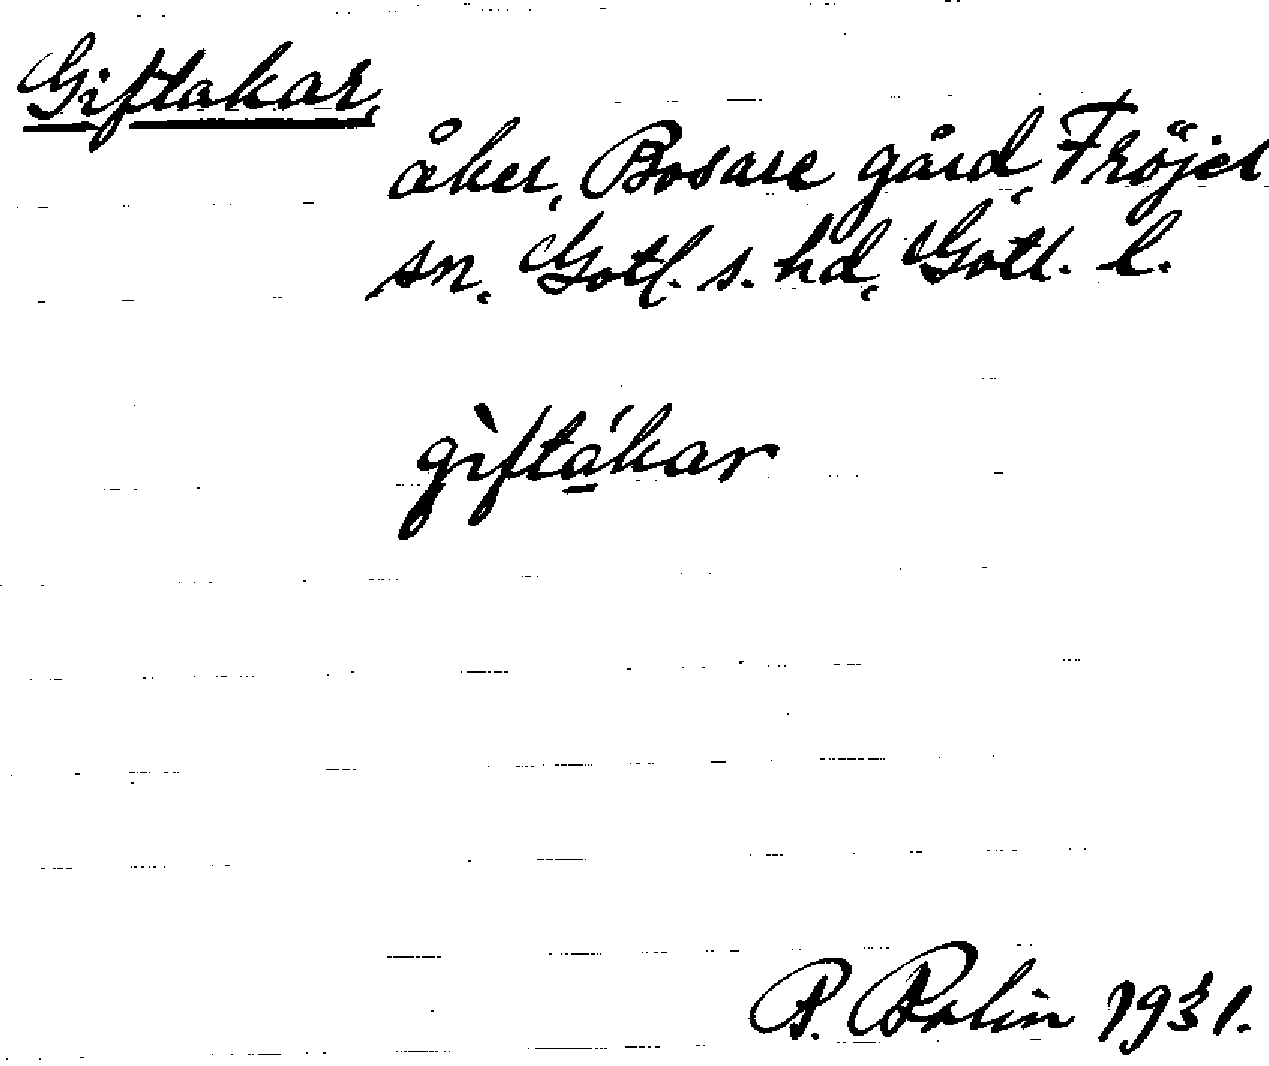 Giftakar,
åker, Bosare gård, Fröjel
sn, Gotl. s. hd, Gotl. l.
gìftákar
P. Rolin 1931.